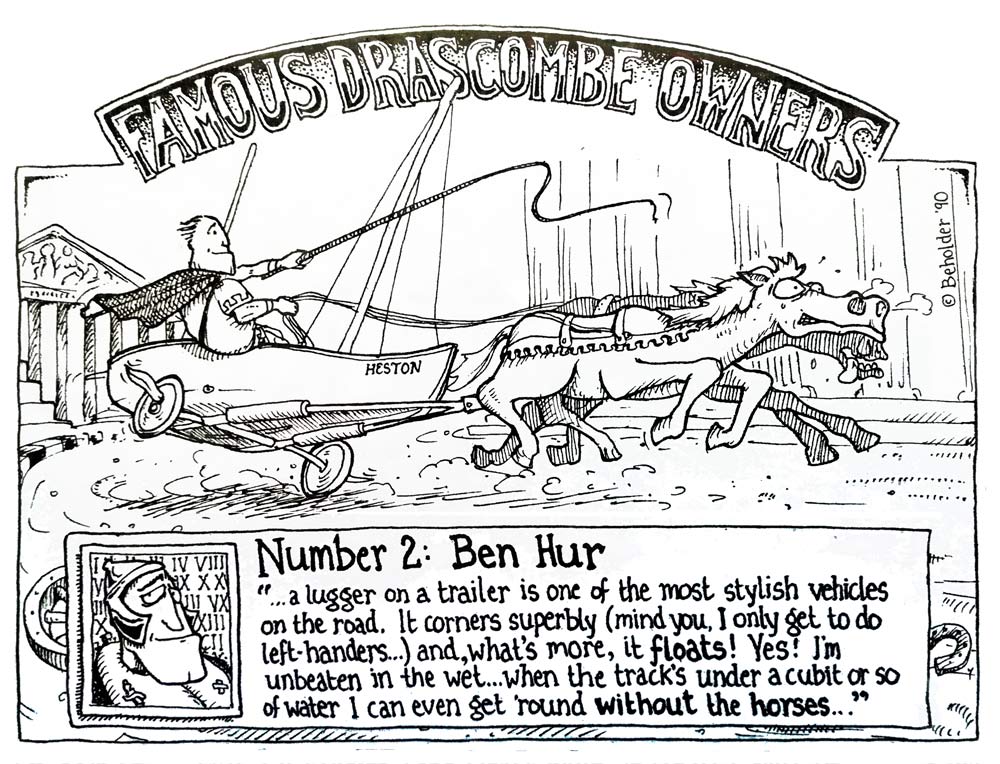 FAMOUS DRASCOMBE OWNERS
© Beholder '90
HESTON
Number 2: Ben Hur
"...a lugger on a trailer is one of the most stylish vehicles
on the road. It corners superbly (mind you, I only get to do
left-handers...) and, what's more, it floats! Yes! I'm
unbeaten in the wet...when the track's under a cubit or so
of water I can even get 'round without the horses..."
IV VIII